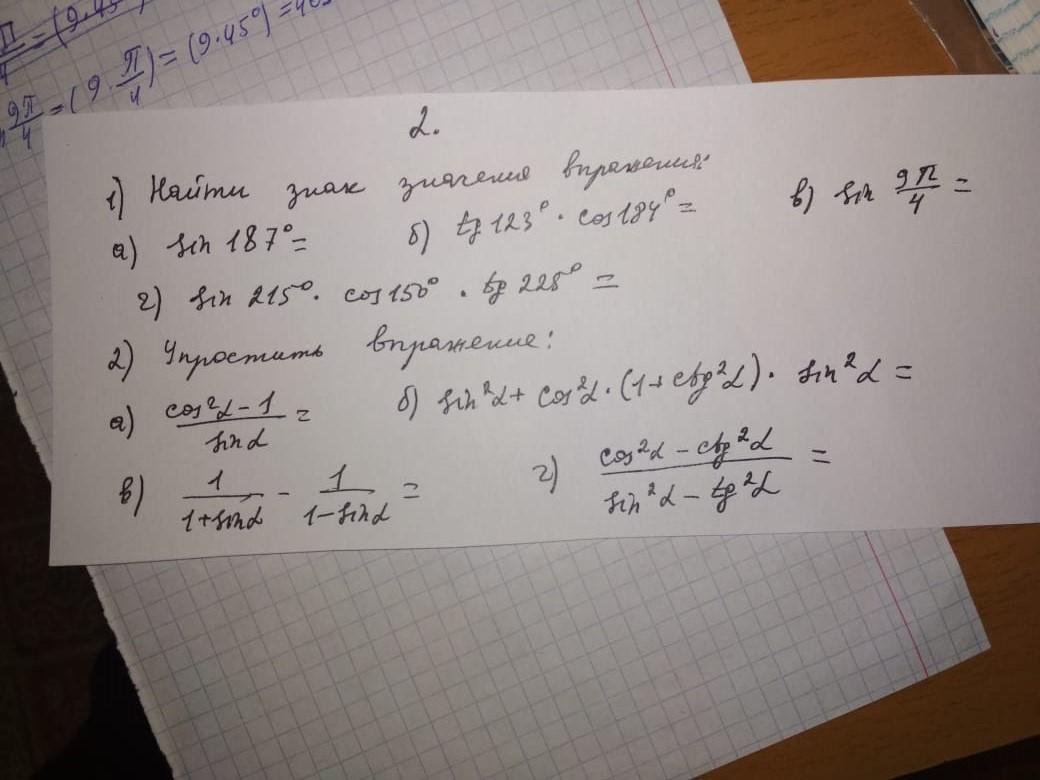 = (9·45°)
9π/4 = (9·π/4) = (9·45°) = 405
2.
1) Найти знак значения выражения:
а) sin 187° = б) tg 123° · cos 184° = в) sin 9π/4 =
г) sin 215° · cos 150° · tg 225° =
2) Упростить выражение:
а) (cos²α - 1)/(sin α) = б) sin²α + cos²α · (1 + ctg²α) · sin²α =
в) 1/(1 + sin α) - 1/(1 - sin α) = г) (cos²α - ctg²α)/(sin²α - tg²α) =